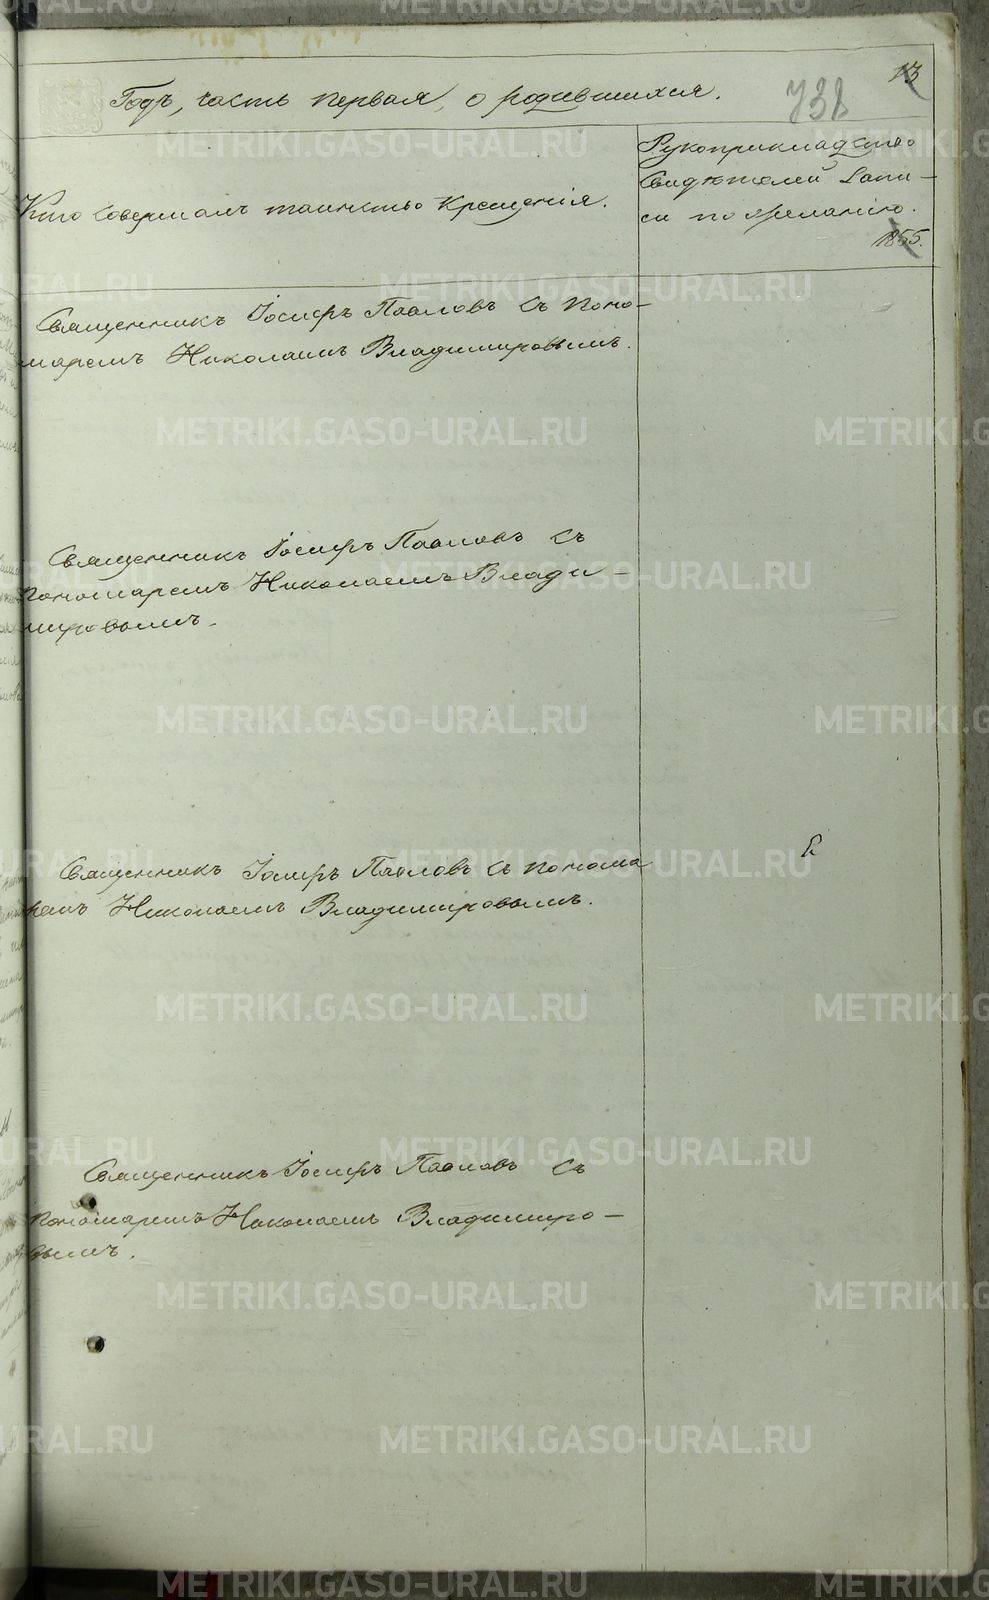 13
738
Годъ, часть первая, о родившихся.
Кто совершалъ таинство крещенія.
Рукоприкладство
свидѣтелей запи-
си по желанію.
1855.
Священникъ Іосифъ Павловъ съ поно-
маремъ Николаемъ Владимировымъ.
Священникъ Іосифъ Павловъ съ
пономаремъ Николаемъ Влади-
мировымъ.
Священникъ Іосифъ Павловъ съ понома
ремъ Николаемъ Владимировымъ.
Священникъ Іосифъ Павловъ съ
пономаремъ Николаемъ Владимиро-
вымъ.
METRIKI.GASO-URAL.RU